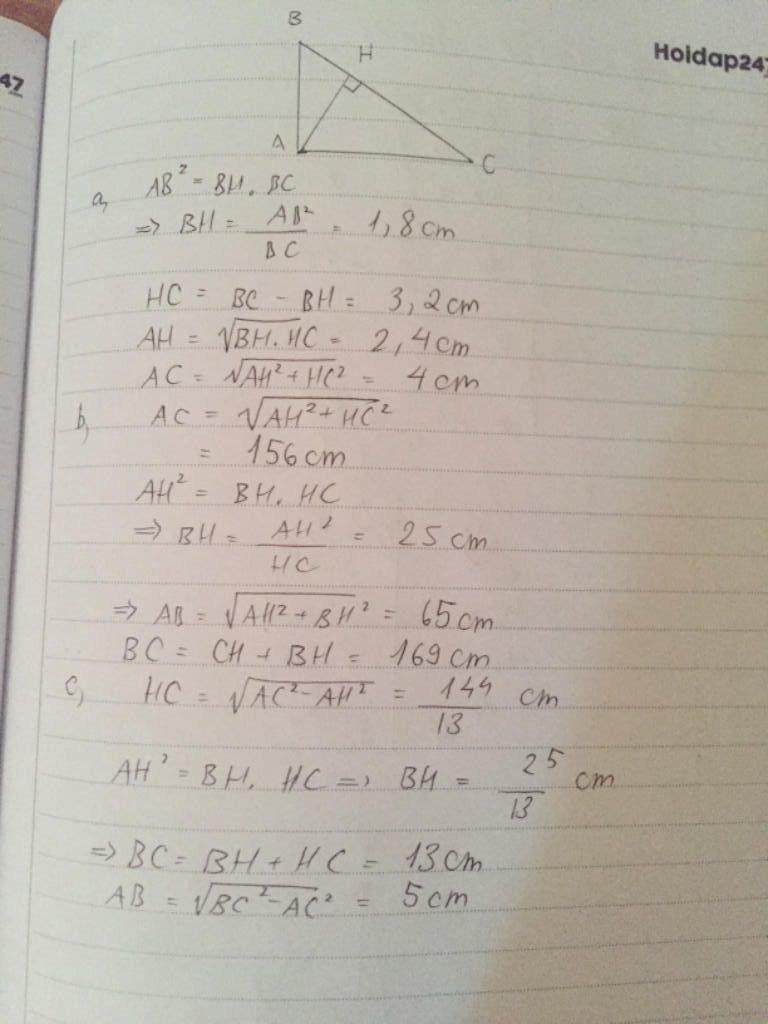 47
Hoidap247
B
H
A
C
a, AB² = BH . BC
=> BH = AB²/BC = 1,8cm
HC = BC - BH = 3,2cm
AH = √BH.HC = 2,4cm
AC = √AH²+HC² = 4cm
b, AC = √AH²+HC²
= 156cm
AH² = BH. HC
=> BH = AH²/HC = 25cm
=> AB = √AH²+BH² = 65cm
BC = CH + BH = 169cm
c, HC = √AC²-AH² = 144/13 cm
AH² = BH. HC => BH = 25/13 cm
=> BC = BH + HC = 13cm
AB = √BC²-AC² = 5cm